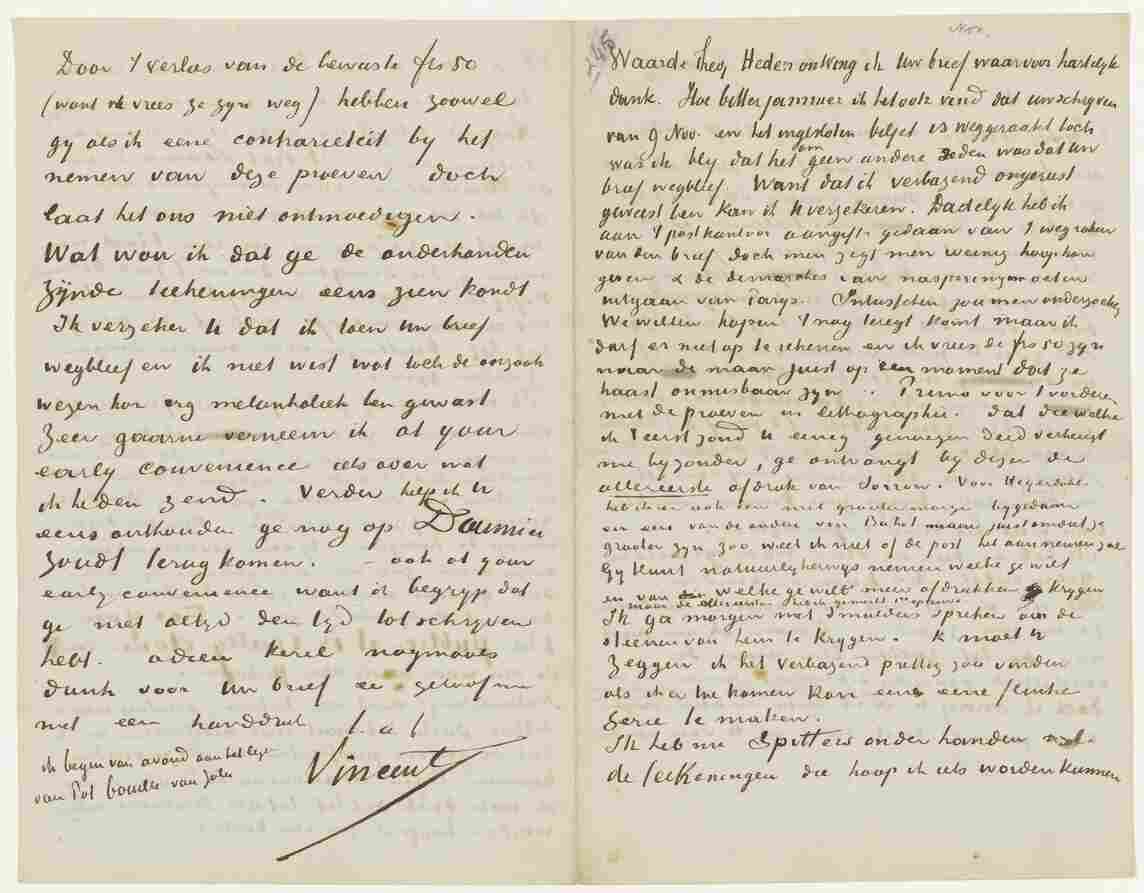 Door 't verlies van de bewuste frs 50
(want ik vrees ze zyn weg) hebben zoowel
gy als ik eene contrarieteit by het
nemen van deze proeven doch
laat het ons niet ontmoedigen.
Wat wou ik dat ge de onderhanden
zijnde teekeningen eens zien kondt
Ik verzeker U dat ik toen Uw brief
wegbleef en ik niet wist wat toch de oorzaak
wezen kon erg melankoliek ben geweest
Zeer gaarne verneem ik at your
early convenience iets over wat
ik heden zend. Verder help ik U
eens onthouden ge nog op Daumier
zoudt terugkomen. – ook at your
early convenience want ik begryp dat
ge niet altyd den tyd tot schryven
hebt. adieu kerel nogmaals
dank voor Uw brief en geloof me
met een handdruk t. à t.
Vincent
ik begin van avond aan het lezen
van Pot bouille van Zola
245
Nov.
Waarde Theo, Heden ontving ik Uw brief waarvoor hartelyk
dank. Hoe bitter jammer ik het ook vind dat uw schryven
van 9 Nov. en het ingesloten biljet is weggeraakt toch
was ik bly dat het om geen andere reden was dat uw
brief wegbleef. Want dat ik verbazend ongerust
geweest ben kan ik U verzekeren. Dadelyk heb ik
aan 't postkantoor aangifte gedaan van 't wegraken
van den brief doch men zegt men weinig hoop kan
geven & de demarches van nasporing moeten
uitgaan van Parys. Intusschen zou men onderzoeken
We willen hopen 't nog teregt komt maar ik
durf er niet op te rekenen en ik vrees de frs 50 zyn
naar de maan juist op een moment dat ze
haast onmisbaar zyn. Primo voor 't vorderen
met de proeven in lithographie. Dat die welke
ik 't eerst zond U eenig genoegen deed verheugt
me byzonder, ge ontvangt by deze de
allereerste afdruk van Sorrow. Voor Heyerdahl
heb ik er ook een met grooter marge bygedaan
en een van de anderen voor Buhot maar juist omdat ze
grooter zyn zoo weet ik niet of de post het aannemen zal
Gy kunt natuurlykerwys nemen welke ge wilt
en van welke ge wilt meer afdrukken krygen
maar de allereersten
Ik ga morgen met Smulders spreken om de
steenen van hem te krygen. Ik moet U
zeggen ik het verbazend prettig zou vinden
als ik er toe komen kan eens eene flinke
serie te maken.
Ik heb nu Spitters onder handen
de teekeningen die hoop ik iets worden kunnen